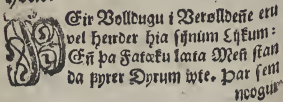 ÞEir Volldugu i Verolldeñe eru
vel heirder hia sijnum Lijkum:
Eñ pa Fatæku læta Meñ stan
da fyrer Dyrum wte. Þar sem
noogur